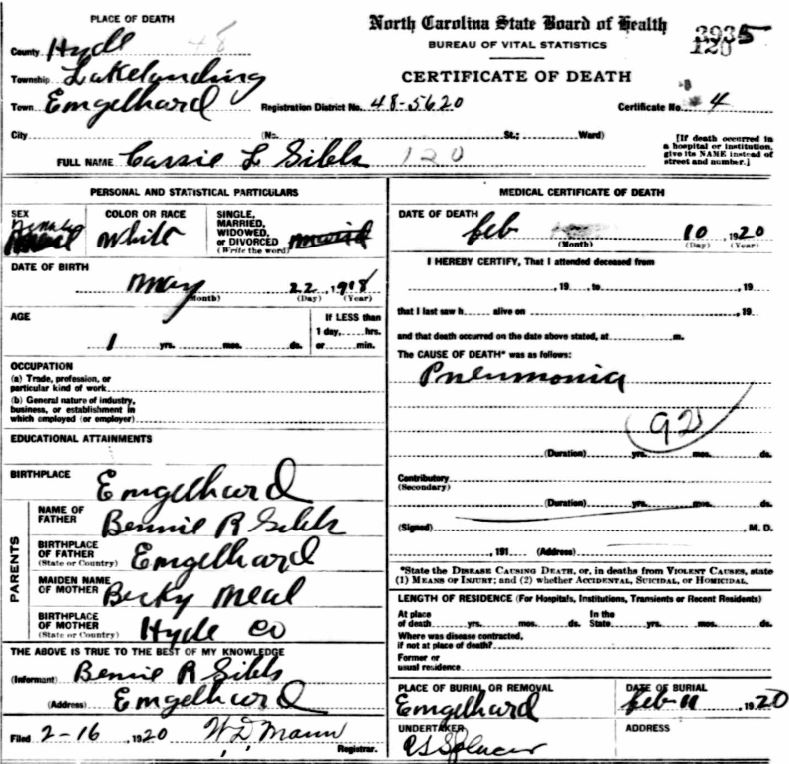 PLACE OF DEATH
County Hyde 48
Township Lakelanding
Town Emgelhard
City
North Carolina State Board of Health
BUREAU OF VITAL STATISTICS
CERTIFICATE OF DEATH
3935
120
Registration District No. 48-5620 Certificate No. 4
(No. St.; Ward)
[If death occurred in
a hospital or institution,
give its NAME instead of
street and number.]
FULL NAME Cassie L Gibbs 120
PERSONAL AND STATISTICAL PARTICULARS
SEX
Female
COLOR OR RACE
White
SINGLE,
MARRIED,
WIDOWED,
or DIVORCED
(Write the word)
DATE OF BIRTH
May 22, 1918
(Month) (Day) (Year)
AGE
1 yrs. mos. ds.
If LESS than
1 day, hrs.
or min.
OCCUPATION
(a) Trade, profession, or
particular kind of work
(b) General nature of industry,
business, or establishment in
which employed (or employer)
EDUCATIONAL ATTAINMENTS
BIRTHPLACE
Emgelhard
PARENTS
NAME OF
FATHER
Bennie R Gibbs
BIRTHPLACE
OF FATHER
(State or Country)
Emgelhard
MAIDEN NAME
OF MOTHER
Becky Meal
BIRTHPLACE
OF MOTHER
(State or Country)
Hyde Co
THE ABOVE IS TRUE TO THE BEST OF MY KNOWLEDGE
(Informant) Bennie R Gibbs
(Address) Emgelhard
Filed 2-16, 1920 W D Mann
Registrar.
MEDICAL CERTIFICATE OF DEATH
DATE OF DEATH
Feb 10, 1920
(Month) (Day) (Year)
I HEREBY CERTIFY, That I attended deceased from
, 19 , to , 19
that I last saw h alive on , 19
and that death occurred on the date above stated, at m.
The CAUSE OF DEATH* was as follows:
Pneumonia
92
(Duration) yrs. mos. ds.
Contributory
(Secondary)
(Duration) yrs. mos. ds.
(Signed) M. D.
, 191 (Address)
*State the DISEASE CAUSING DEATH, or, in deaths from VIOLENT CAUSES, state
(1) MEANS OF INJURY; and (2) whether ACCIDENTAL, SUICIDAL, or HOMICIDAL.
LENGTH OF RESIDENCE (For Hospitals, Institutions, Transients or Recent Residents)
At place In the
of death yrs. mos. ds. State yrs. mos. ds.
Where was disease contracted,
if not at place of death?
Former or
usual residence
PLACE OF BURIAL OR REMOVAL
Emgelhard
DATE OF BURIAL
Feb 11 1920
UNDERTAKER
Spencer
ADDRESS